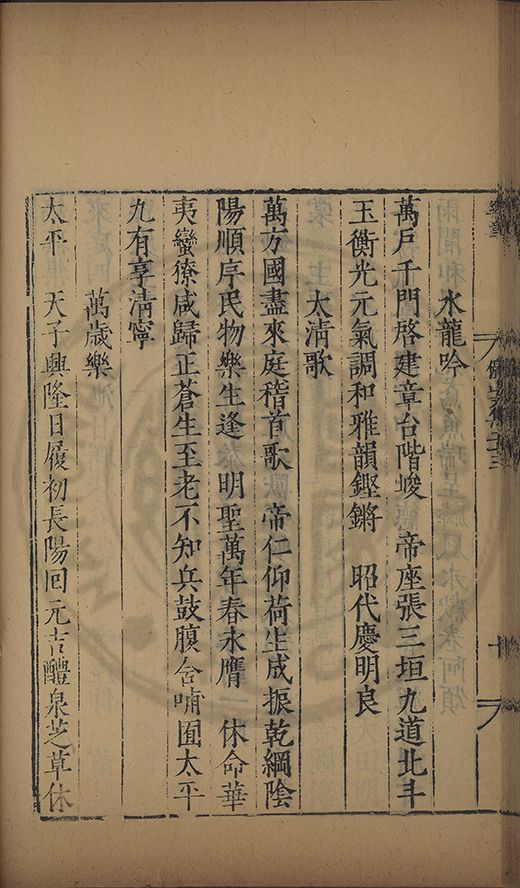 水龍吟
萬戸千門啓建章台階峻　帝座張三垣九道北斗
玉衡光元氣調和雅韻鏗鏘　昭代慶明良
太淸歌
萬方國盡來庭稽首歌　帝仁仰荷生成振乾綱陰
陽順序民物樂生逢　明聖萬年春永膺　休命華
夷蠻獠咸歸正蒼生至老不知兵鼓腹含哺囿太平
九有享淸寧
萬歲樂
太平　天子興隆日履初長陽回元吉醴泉芝草休